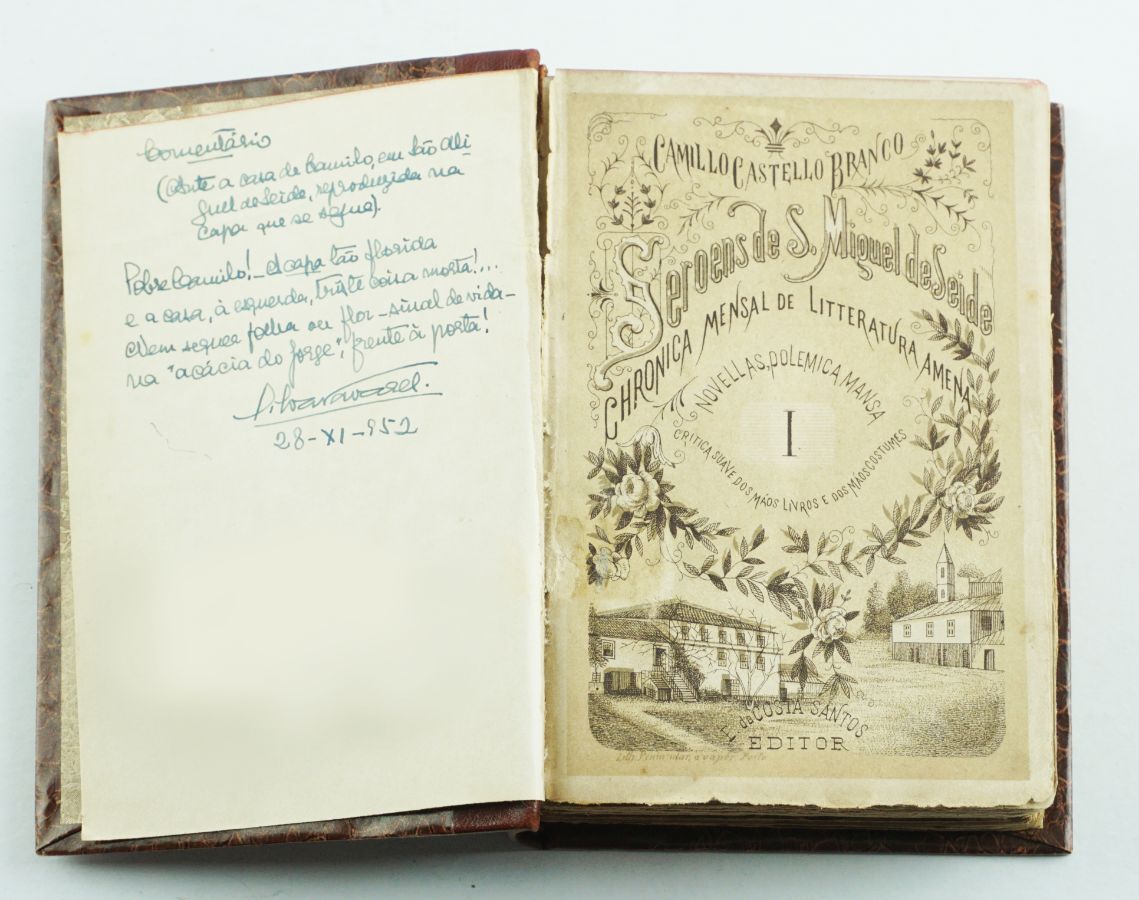 Comentário
(Ante a casa de Camilo, em São Mi
guel de Seide, reproduzida na
capa que se segue).
Pobre Camilo! – A capa tão florida
e a casa, à esquerda, triste coisa morta!...
Nem sequer folha ou flor – sinal de vida –
na "acácia do Jorge", frente à porta!
28-XI-952
CAMILLO CASTELLO BRANCO
Seroens de S. Miguel de Seide
CHRONICA MENSAL DE LITTERATURA AMENA
NOVELLAS, POLEMICA MANSA
I
CRITICA SUAVE DOS MÁOS LIVROS E DOS MÁOS COSTUMES
da COSTA SANTOS
EDITOR
Lith. a vapor. Porto